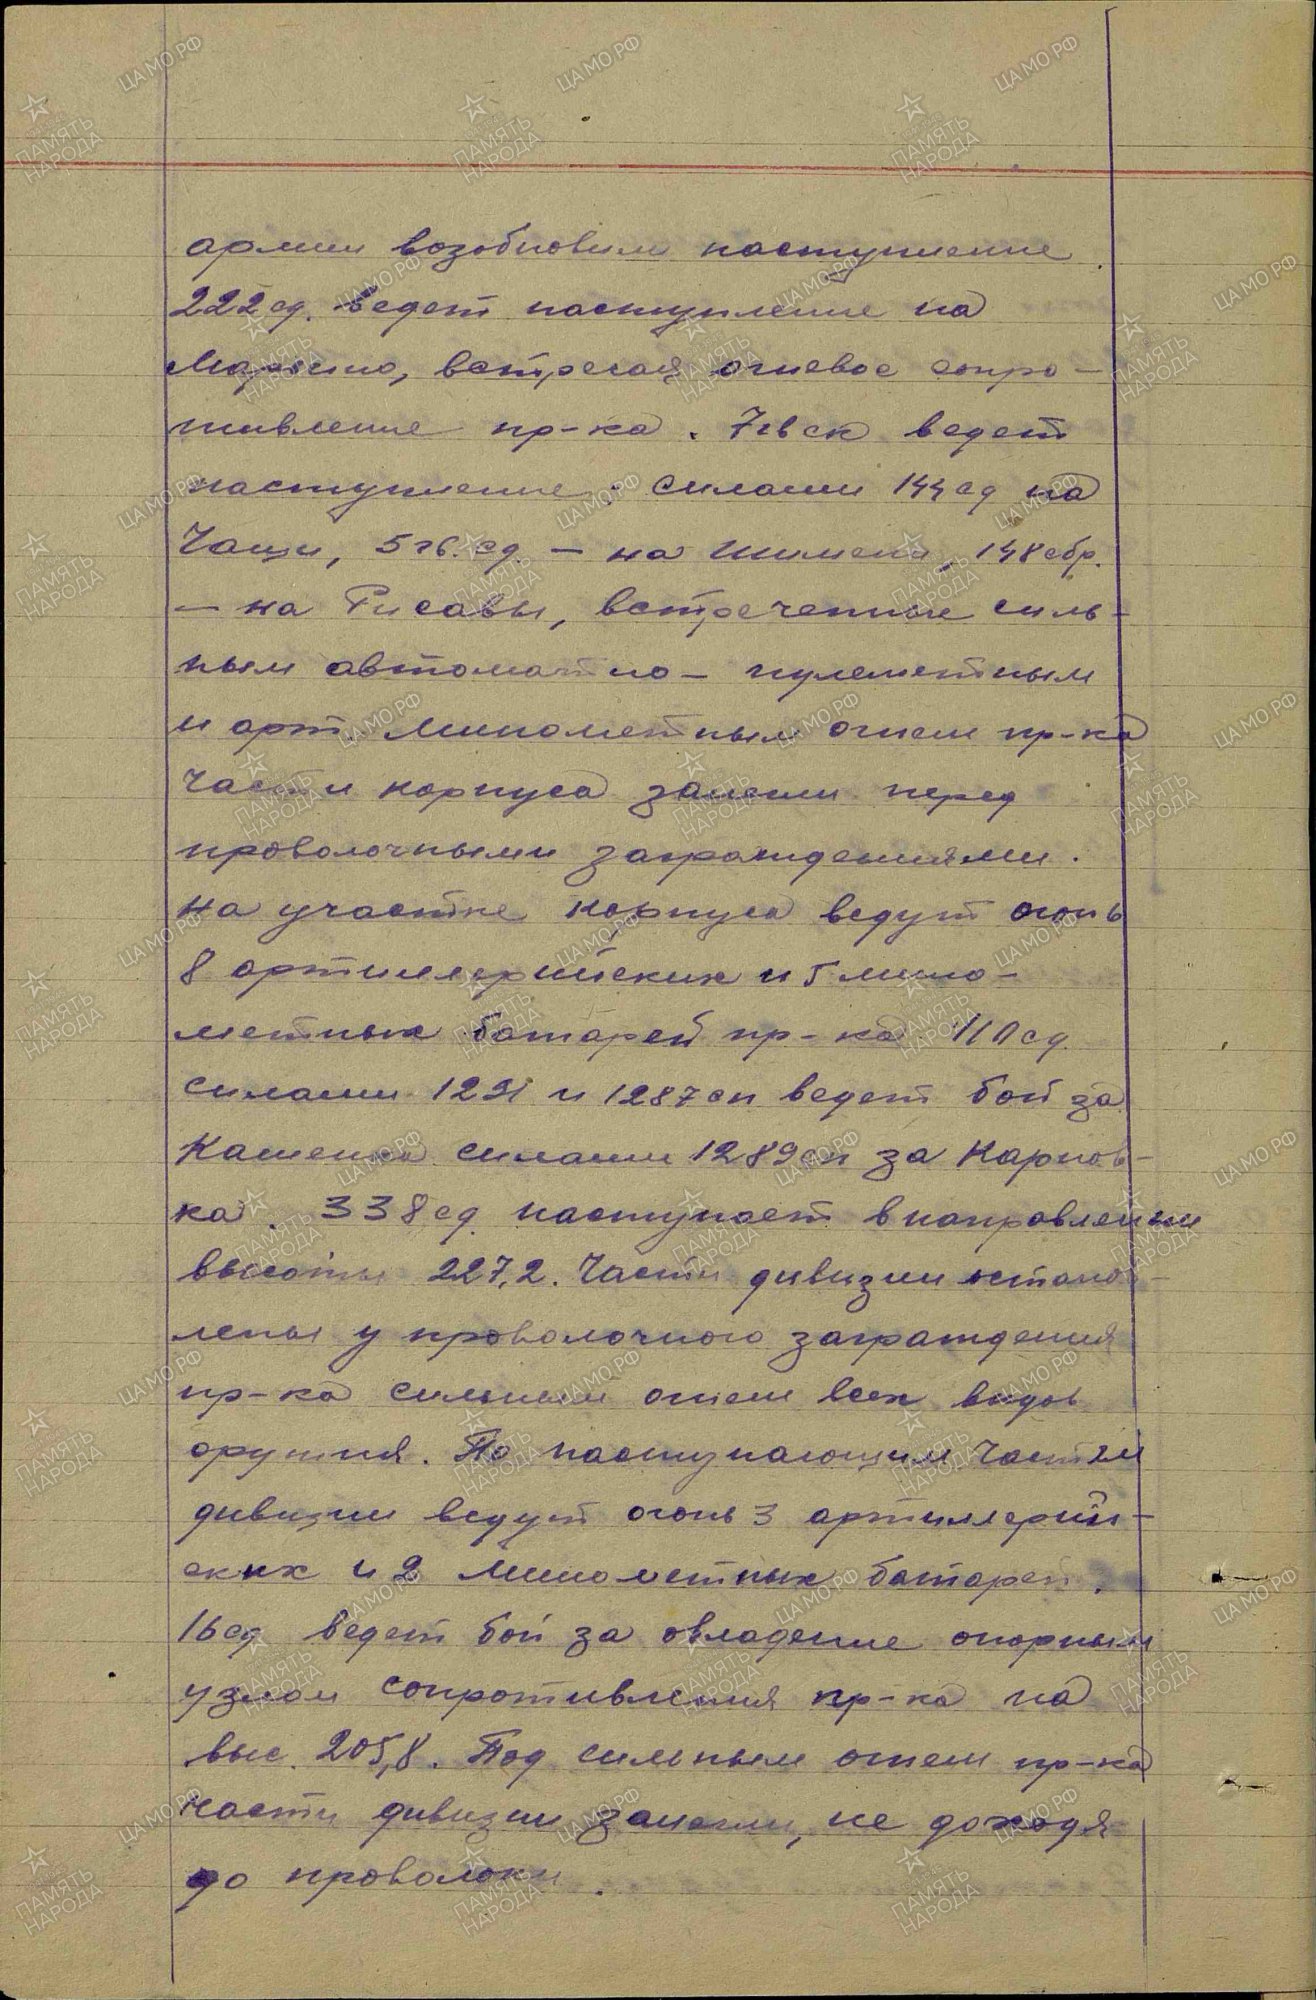 армии возобновили наступление.
222 сд. ведет наступление на
Марьино, встречая огневое сопро-
тивление пр-ка. 7 гв ск ведет
наступление: силами 144 сд на
Чащи, 5 гв. сд – на Шимени, 148 сбр.
– на Рисавы, встреченные силь-
ным автоматно-пулеметным
и арт. минометным огнем пр-ка
части корпуса залегли перед
проволочными заграждениями.
На участке корпуса ведут огонь
8 артиллерийских и 5 мино-
метных батарей пр-ка 110 сд.
силами 1291 и 1287 сп ведет бой за
силами 1289 сп за Карпов-
ка. 338 сд наступает в направлении
высоты 227,2. Части дивизии останов-
лены у проволочного заграждения
пр-ка сильным огнем всех видов
оружия. По наступающим частям
дивизии ведут огонь 3 артиллерий-
ских и 2 минометных батареи.
16 сд ведет бой за овладение опорным
узлом сопротивления пр-ка на
выс. 205,8. Под сильным огнем пр-ка
части дивизии залегли, не доходя
до проволоки.
ЦА МО РФ
ПАМЯТЬ
НАРОДА